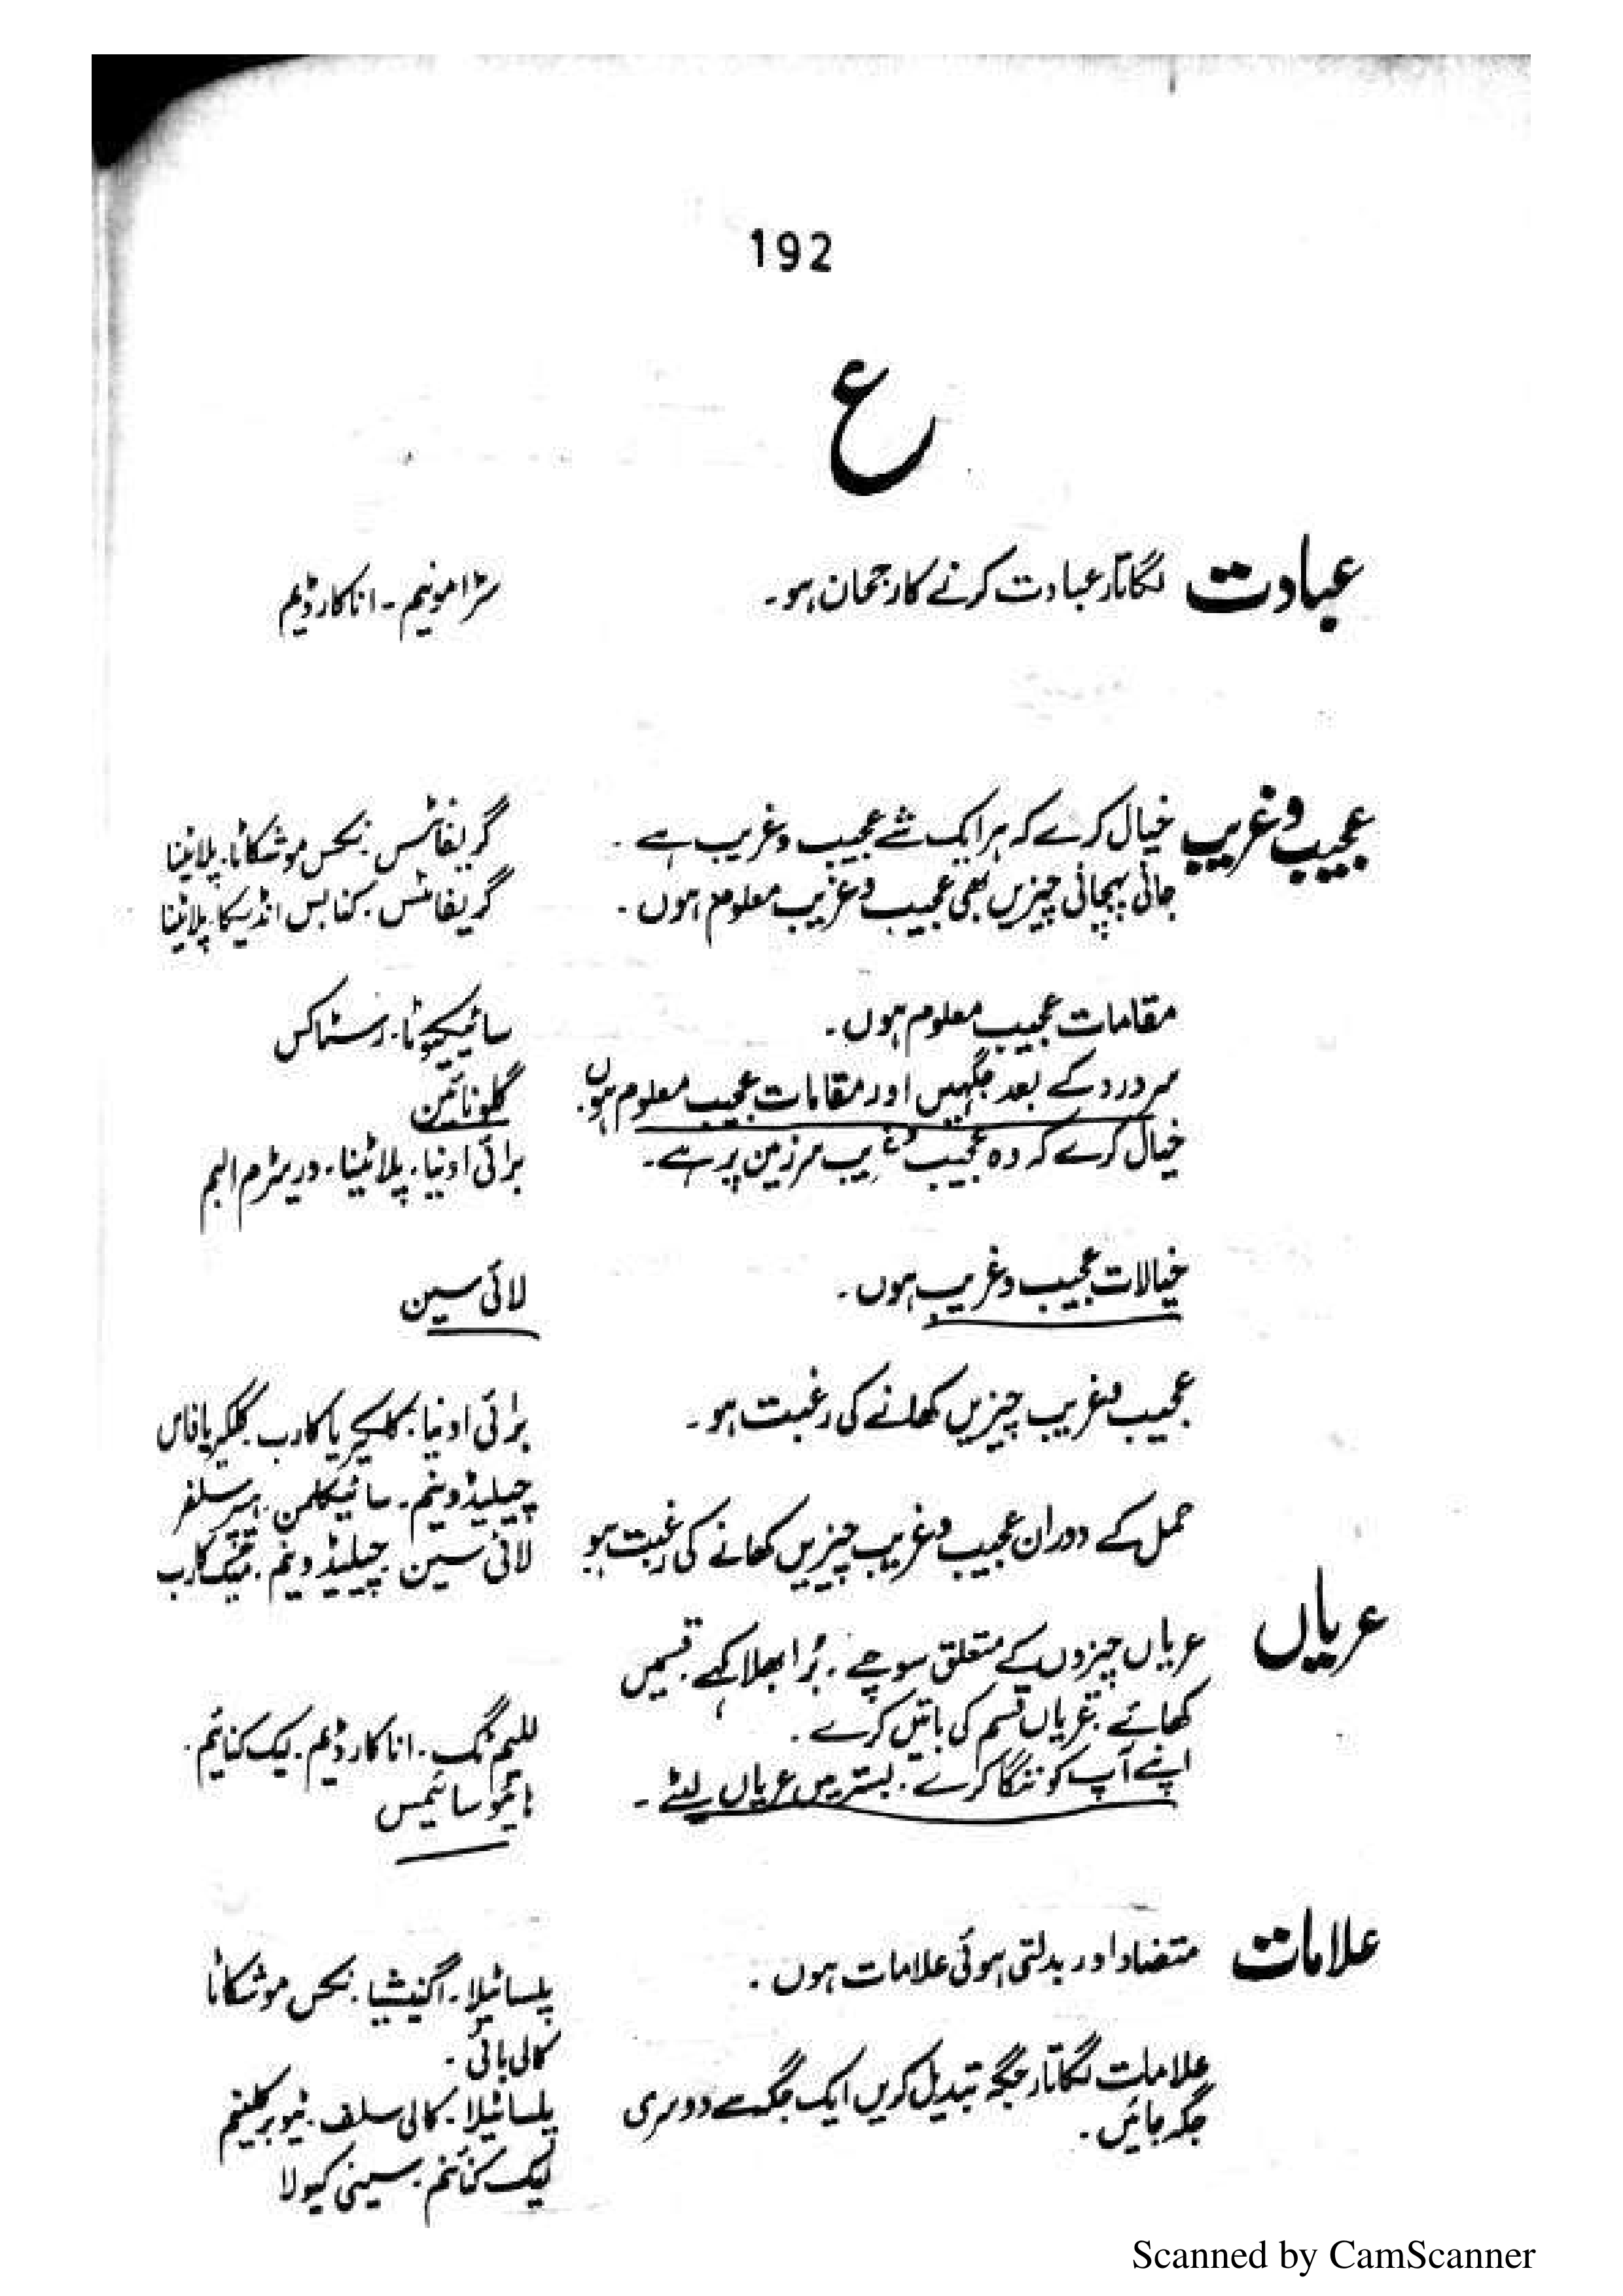 192
ع
عبادت لگاتار عبادت کرنے کا رجحان ہو۔ سٹرامونیم۔ اناکارڈیم
عجیب و غریب خیال کرے کہ ہر ایک شے عجیب و غریب ہے۔ گریفائٹس۔ نکس موشکاٹا۔ پلاٹینا
جانی پہچانی چیزیں بھی عجیب و غریب معلوم ہوں۔ گریفائٹس۔ کنابس انڈیسکا۔ پلاٹینا
مقامات عجیب معلوم ہوں۔ سائیکیوٹا۔ رسٹاکس
سر درد کے بعد جگہیں اور مقامات عجیب معلوم ہوں۔ گلونائن
خیال کرے کہ وہ عجیب و غریب سرزمین پر ہے۔ برائی اونیا۔ پلاٹینا۔ وریٹرم البم
خیالات عجیب و غریب ہوں۔ لائی سین
عجیب و غریب چیزیں کھانے کی رغبت ہو۔ برائی اونیا۔ کلکیریا کارب۔ کلکیریا فاس
چیلیڈونیم۔ سائیکلمن۔ ہیپر سلفر
حمل کے دوران عجیب و غریب چیزیں کھانے کی رغبت ہو لائی سین۔ چیلیڈونیم۔ میگ کارب
عریاں عریاں چیزوں کے متعلق سوچے۔ بُرا بھلا کہے۔ قسمیں
کھائے۔ عریاں قسم کی باتیں کرے۔ للیم ٹگ۔ اناکارڈیم۔ لیک کنائنم۔
اپنے آپ کو ننگا کرے۔ بستر میں عریاں لیٹے۔ ہائیوسائیمس
علامات متضاد اور بدلتی ہوئی علامات ہوں۔ پلساٹیلا۔ اگنیشیا۔ نکس موشکاٹا
کالی بائی۔
علامات لگاتار جگہ تبدیل کریں ایک جگہ سے دوسری پلساٹیلا۔ کالی سلف۔ ٹیوبرکلینم
جگہ جائیں۔ لیک کنائنم۔ سینی کیولا
Scanned by CamScanner